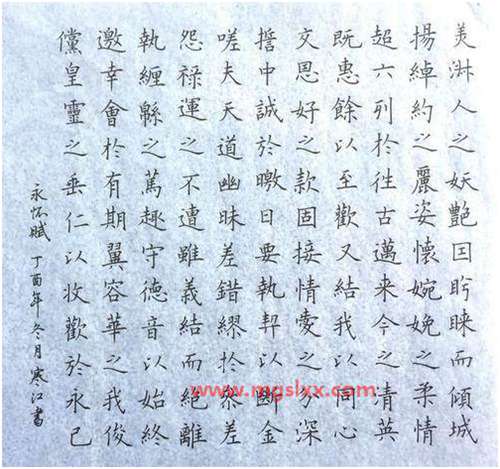 美淑人之妖艷囙盻睞而傾城
揚綽約之麗姿懷婉娩之柔情
超六列於往古邁来今之清英
既惠餘以至歡又結我以同心
交恩好之款固接情愛之分深
誓中誠於曒日要執契以斷金
嗟夫天道幽昧差錯繆於參差
怨祿運之不遭雖義結而絕離
執纏緜之篤趣守德音以始終
邀幸會於有期翼容華之我俊
儻皇靈之垂仁以收歡於永已
永怀賦 丁酉年冬月寒江書
www.mgslxx.com